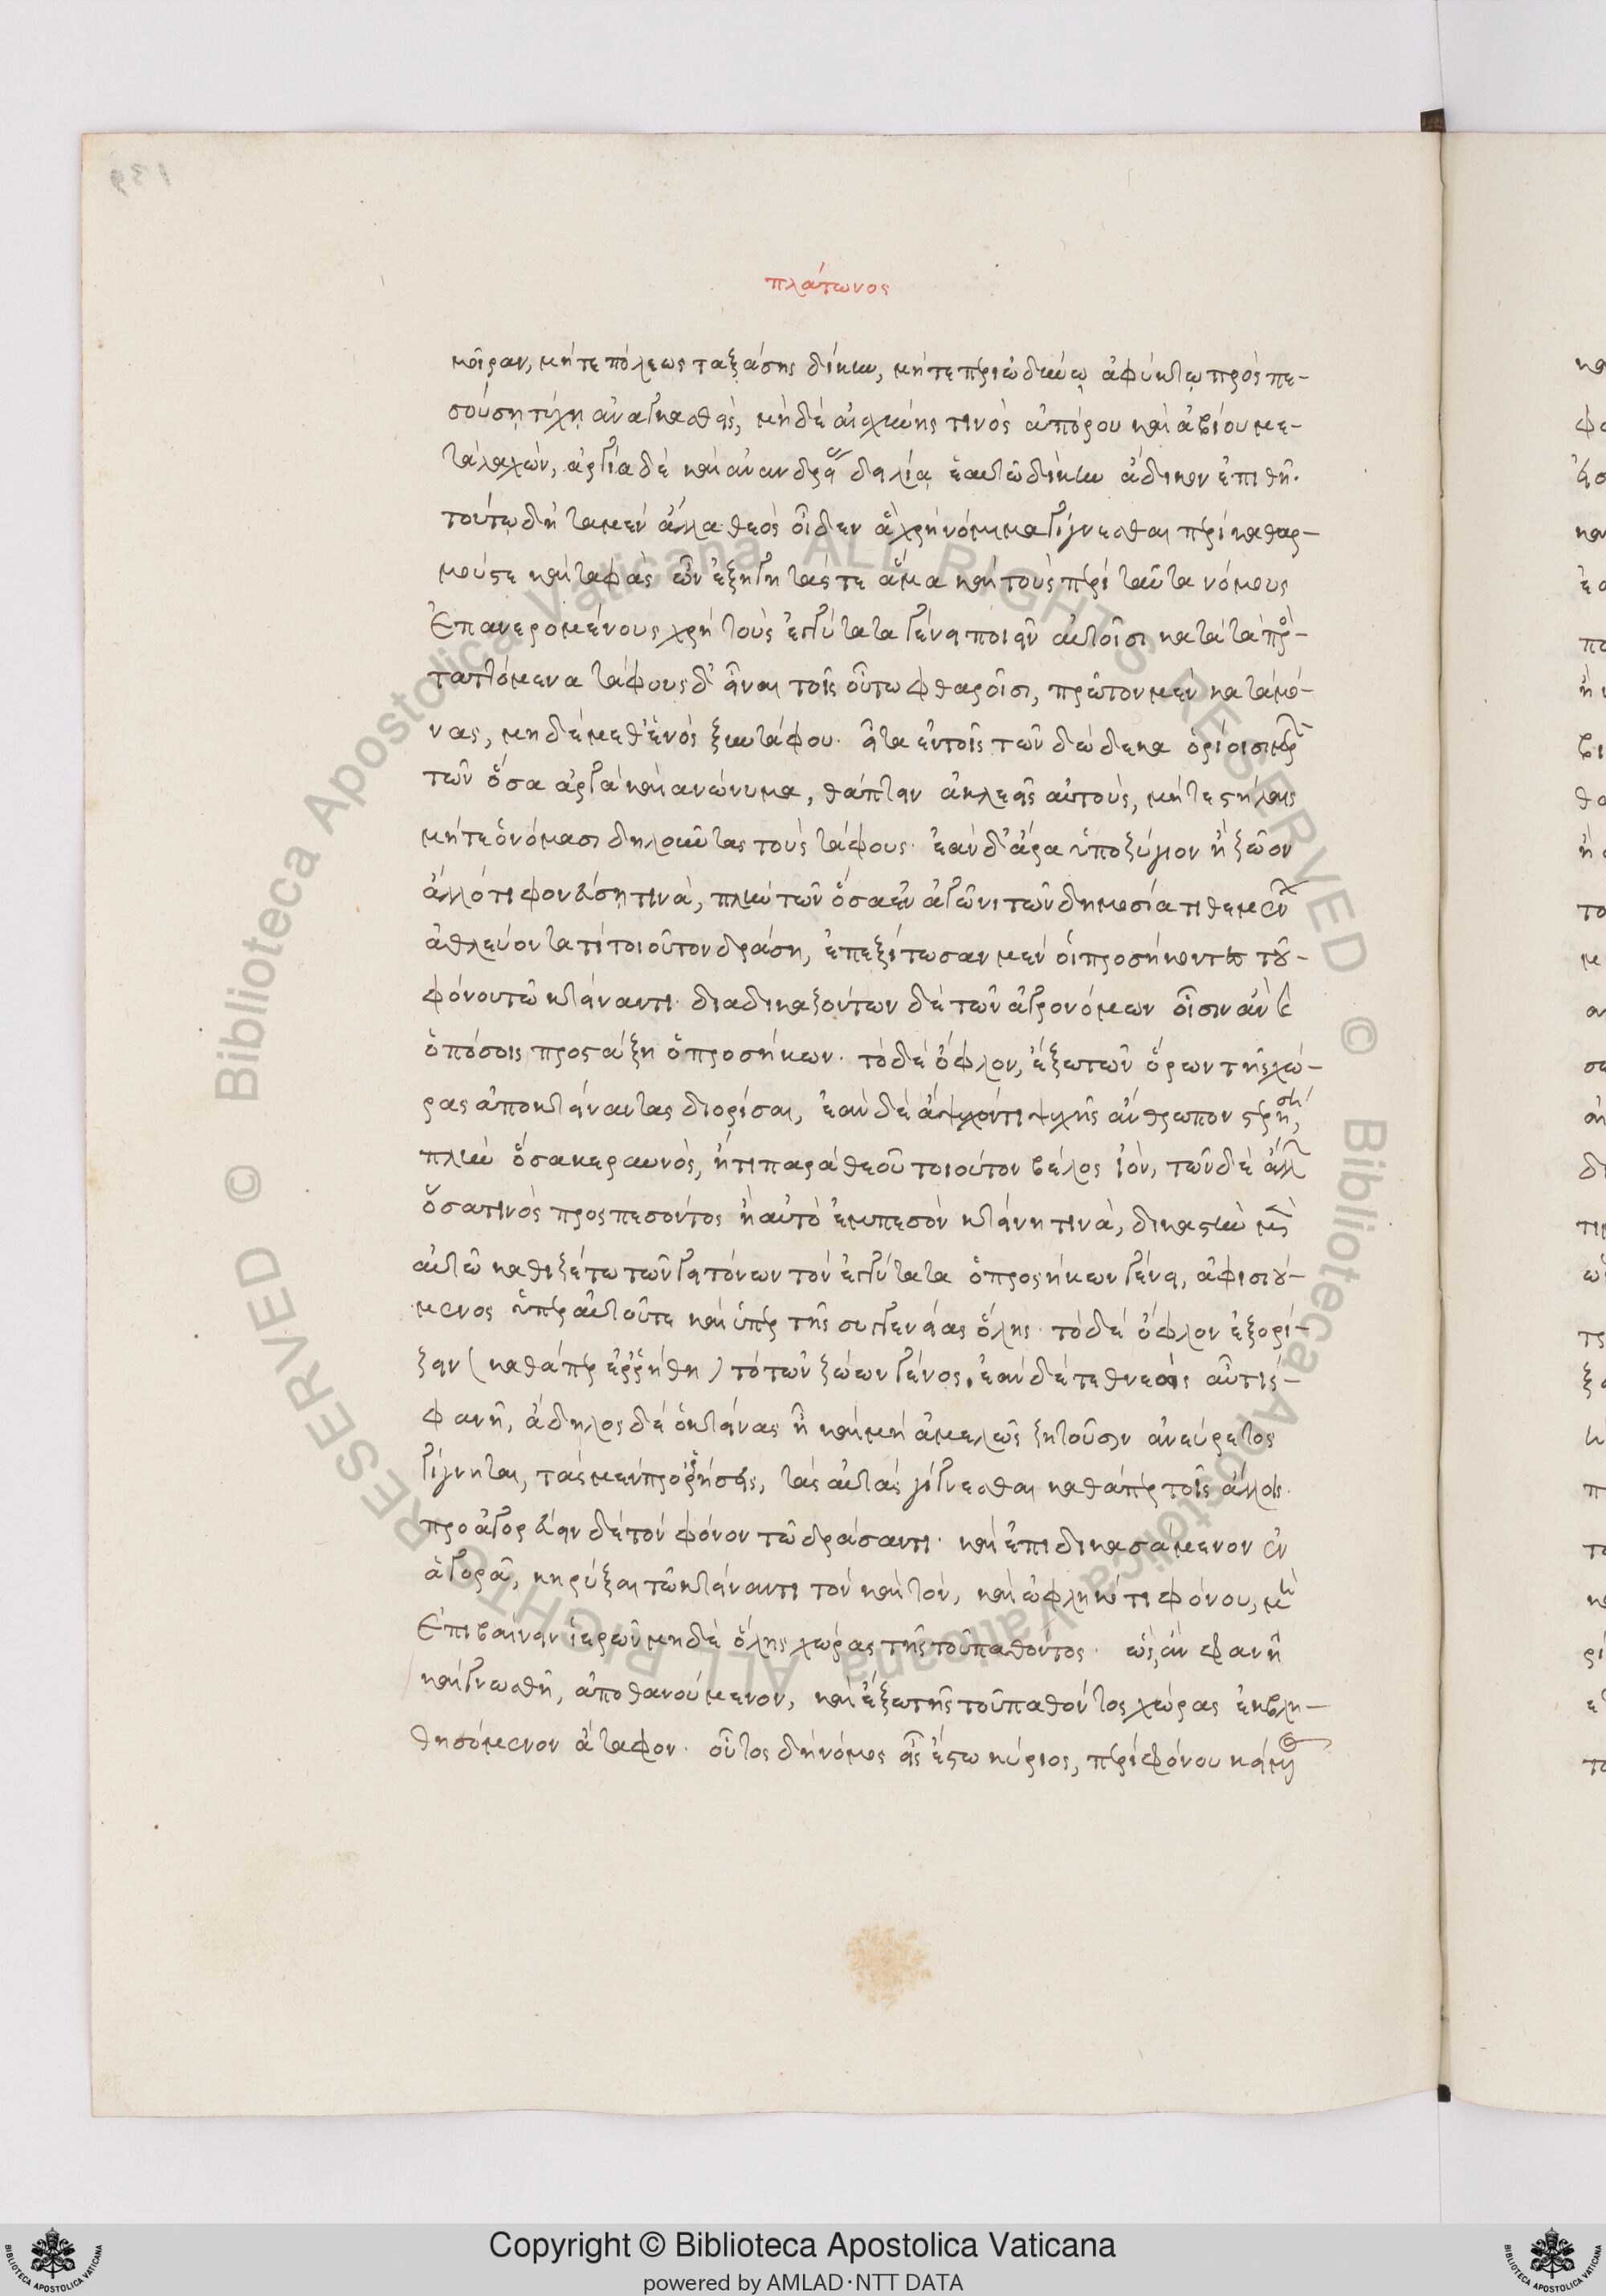 πλάτωνος
μοῖραν, μήτε πόλεως ταξάσης δίκην, μήτε περιωδύνῳ ἀφύκτῳ προσπε-
σούσῃ τύχῃ ἀναγκασθεὶς, μηδὲ αἰσχύνης τινὸς ἀπόρου καὶ ἀβίου με-
ταλαχών, ἀργίᾳ δὲ καὶ ἀνανδρίας δειλίᾳ ἑαυτῷ δίκην ἄδικον ἐπιθῇ.
τούτῳ δὴ τὰ μὲν ἄλλα θεὸς οἶδεν ἃ χρὴ νόμιμα γίγνεσθαι περὶ καθαρ-
μούς τε καὶ ταφὰς ὧν ἐξηγητάς τε ἅμα καὶ τοὺς περὶ ταῦτα νόμους
ἐπανερομένους χρὴ τοὺς ἐγγύτατα γένει ποιεῖν αὐτοῖσι κατὰ τὰ προ-
ταττόμενα τάφους δ' εἶναι τοῖς οὕτω φθαρεῖσι, πρῶτον μὲν κατὰ μό-
νας, μηδὲ μεθ' ἑνὸς ξυντάφου. εἶτα ἐν τοῖς τῶν δώδεκα ὁρίοισι μερῶν
τῶν ὅσα ἀργὰ καὶ ἀνώνυμα, θάπτειν ἀκλεεῖς αὐτοὺς, μήτε στήλαις
μήτε ὀνόμασι δηλοῦντας τοὺς τάφους. ἐὰν δ' ἄρα ὑποζύγιον ἢ ζῷον
ἄλλό τι φονεύσῃ τινὰ, πλὴν τῶν ὅσα ἐν ἀγῶνι τῶν δημοσίᾳ τιθεμένων
ἀθλεύοντά τι τοιοῦτον δράσῃ, ἐπεξίτωσαν μὲν οἱ προσήκοντες τοῦ
φόνου τῷ κτείναντι. διαδικαζόντων δὲ τῶν ἀγρονόμων οἷσιν ἂν καὶ
ὁπόσοις προστάξῃ ὁ προσήκων. τὸ δὲ ὄφλον, ἔξω τῶν ὅρων τῆς χώ-
ρας ἀποκτείναντας διορίσαι, ἐὰν δὲ ἄψυχόν τι ψυχῆς ἄνθρωπον στερήσῃ,
πλὴν ὅσα κεραυνὸς, ἤ τι παρὰ θεοῦ τοιοῦτον βέλος ἰὸν, τῶν δὲ ἄλλων
ὅσα τινὸς προσπεσόντος ἢ αὐτὸ ἐμπεσὸν κτείνῃ τινὰ, δικαστὴν μὲν
αὐτῷ καθιζέτω τῶν γειτόνων τὸν ἐγγύτατα ὁ προσήκων γένει, ἀφοσιού-
μενος ὑπὲρ αὑτοῦ τε καὶ ὑπὲρ τῆς συγγενείας ὅλης. τὸ δὲ ὄφλον ἐξορί-
ζειν (καθάπερ ἐρρήθη) τὸ τῶν ζώων γένος. ἐὰν δὲ τεθνεὼς αὖ τις
φανῇ, ἄδηλος δὲ ὁ κτείνας ᾖ καὶ μὴ ἀμελῶς ζητοῦσιν ἀνεύρετος
γίγνηται, τὰς μὲν προρρήσεις, τὰς αὐτὰς γίγνεσθαι καθάπερ τοῖς ἄλλοις.
προαγορεύειν δὲ τὸν φόνον τῷ δράσαντι. καὶ ἐπιδικασάμενον ἐν
ἀγορᾷ, κηρύξαι τῷ κτείναντι τὸν καὶ τὸν, καὶ ὠφληκότι φόνου, μὴ
ἐπιβαίνειν ἱερῶν μηδὲ ὅλης χώρας τῆς τοῦ παθόντος. ὡς, ἂν φανῇ
καὶ γνωσθῇ, ἀποθανούμενον, καὶ ἔξω τῆς τοῦ παθόντος χώρας ἐκβλη-
θησόμενον ἄταφον. οὗτος δὴ νόμος εἷς ἔστω κύριος, περὶ φόνου κείμενος